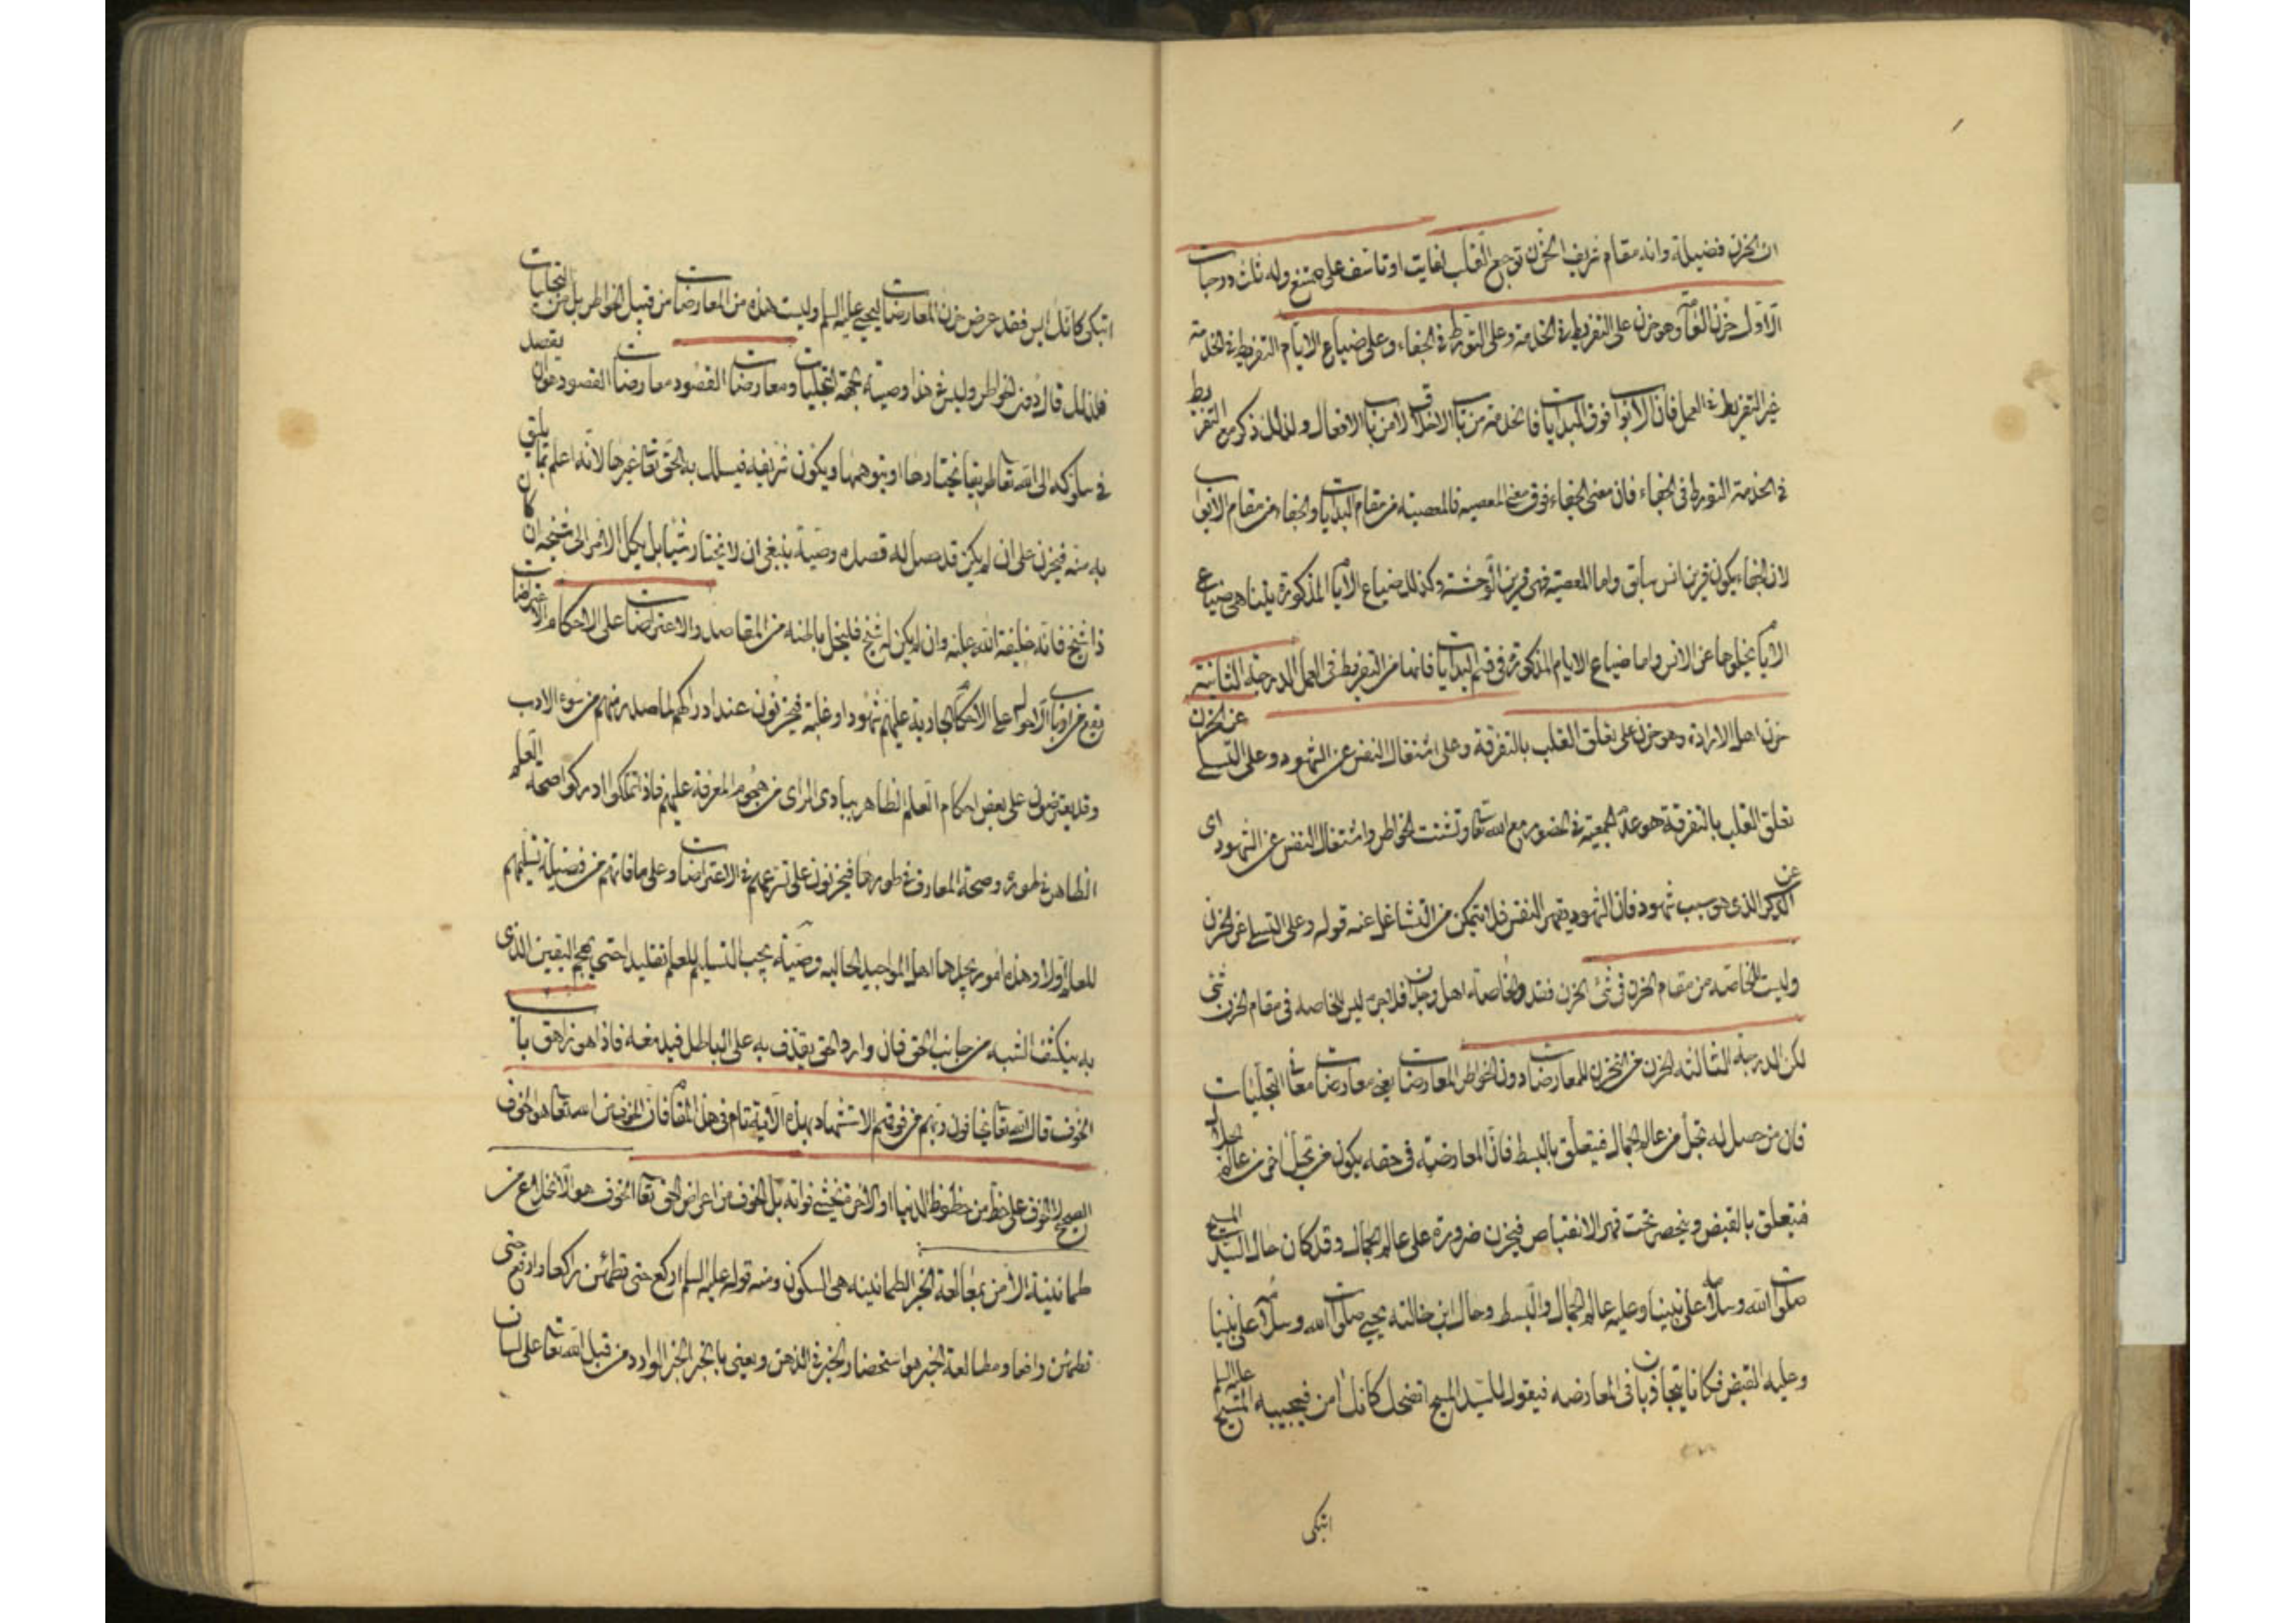 ان الحزن فضيلة وانه مقام شريف الحزن توجع القلب لفايت او تاسف على ممتنع وله ثلث درجات
الاولى حزن العامة وهو حزن على التفريط في الخدمة وعلى التورط في الجفاء وعلى ضياع الايام التفريط في الخدمة
غير التفريط في العمل فان الابواب فوق البدايات فالخدمة من باب الاخلاق لا من باب الافعال ولذلك ذكر مع التفريط
في الخدمة التورط في الجفاء فان معنى الجفاء فوق معنى المعصيه فالمعصية من مقام البدايات والجفاء من مقام الابواب
لان الجفاء يكون قرين انس سابق واما المعصية فهي قرين الوحشة وكذلك ضياع الايام المذكورة بيننا هي ضياع
الايام بخلوها عن الانس واما ضياع الايام المذكورة في قسم البدايات فانما من التفريط في العمل الدرجة الثانية
حزن اهل الارادة وهو حزن على تعلق القلب بالتفرقة وعلى اشتغال النفس عن الشهود وعلى التسلي عن الحزن
تعلق القلب بالتفرقة هو عدم الجمعية في الحضور مع الله تعالى وتشتت الخواطر واشتغال النفس عن الشهود اى
عن الذكر الذى هو سبب شهود فان الشهود يقهر النفس فلا تتمكن من التشاغل عنه قوله وعلى التسلي عن الحزن
وليست الخاصة من مقام الحزن في شئ الحزن فقد والخاصة اهل وجدان فلا جرم ليس للخاصه في مقام الحزن شئ
لكن الدرجة الثالثه الحزن من التحزن للمعارضات دون الخواطر المعارضات يعنى معارضات معانى التجليات
فان من حصل له تجل من عالم الجمال فيتعلق بالبسط فان المعارضة في حقه يكون من تجل اخر من عالم الجلال
فيتعلق بالقبض وينحصر تحت قهر الانقباض فيحزن ضرورة على عالم الجمال وقد كان حال السيد المسيح
صلوات الله وسلامه على نبينا وعليه عالم الجمال والبسط وحال ابن خالته يحيى صلوات الله وسلامه على نبينا
وعليه القبض فكانا يتجاذبان في المعارضه فيقول للسيد المسيح اتضحك كانك امن فيجيبه المسيح عليه السلم
اتبكى
اتبكى كانك ايس فقد عرض حزن المعارضات ليحيى عليه السلم وليست هذه من المعارضات من قبيل الخواطر بل من التجليات
فلذلك قال دون الخواطر وليس في هذا وصية بجهة التجليات ومعارضات القصود معارضات القصود هو ان يقصد
في سلوكه الى الله تعالى طريقا يختارها او يتوهمها ويكون شريفه فيسلك به الحق تعالى غيرها لانه اعلم بما يليق
به منه فيحزن على ان لم يكن قد حصل له قصده وصية ينبغى ان لا يختار شيئا بل يكل الامر الى شيخه ان كان
ذا شيخ فانه خليفة الله عليه وان لم يكن له شيخ فليخل باطنه من المقاصد والاعتراضات على الاحكام الاعتراضات
تقع من ارباب الاحوال على الاحكام الجارية عليهم شهود او غلبة فيحزنون عند ادراكهم لما صدر منهم من سوء الادب
وقد يعترضون على بعض احكام العلم الظاهر ببادى الراى من هجوم المعرفة عليهم فاذا تمكنوا ادركوا صحة العلم
الظاهر في طوره وصحة المعارف في طورها فيحزنون على تسرعهم في الاعتراضات وعلى ما فاتهم من فضيلة تسليمهم
للعلم اولا وهذه امور يجدها اهل المواجيد الحاليه وصية يجب التسليم للعلم تقليدا حتى يهجم اليقين الذى
به ينكشف الشبه من جانب الحق فان وارد الحق يقذف به على الباطل فيدمغه فاذا هو زاهق باب
الخوف قال الله تعالى يخافون ربهم من فوقهم الاستشهاد بهذه الاية تام في هذا المقام فان الخوف من الله تعالى هو الخوف
الصحيح لا الخوف على حظ من حظوظ الدنيا او الاخرة فيخشى فواته بل الخوف من اعراض الحق تعالى الخوف هو الانخلاع من
طمانينة الامن بمطالعة الخبر الطمانينه هى السكون ومنه قوله عليه السلم اركع حتى تطمئن راكعا وارفع حتى
تطمئن رافعا ومطالعة الخبر هو استحضار الخبر في الذهن ويعنى بالخبر الخبر الوارد من قبل الله تعالى على لسان